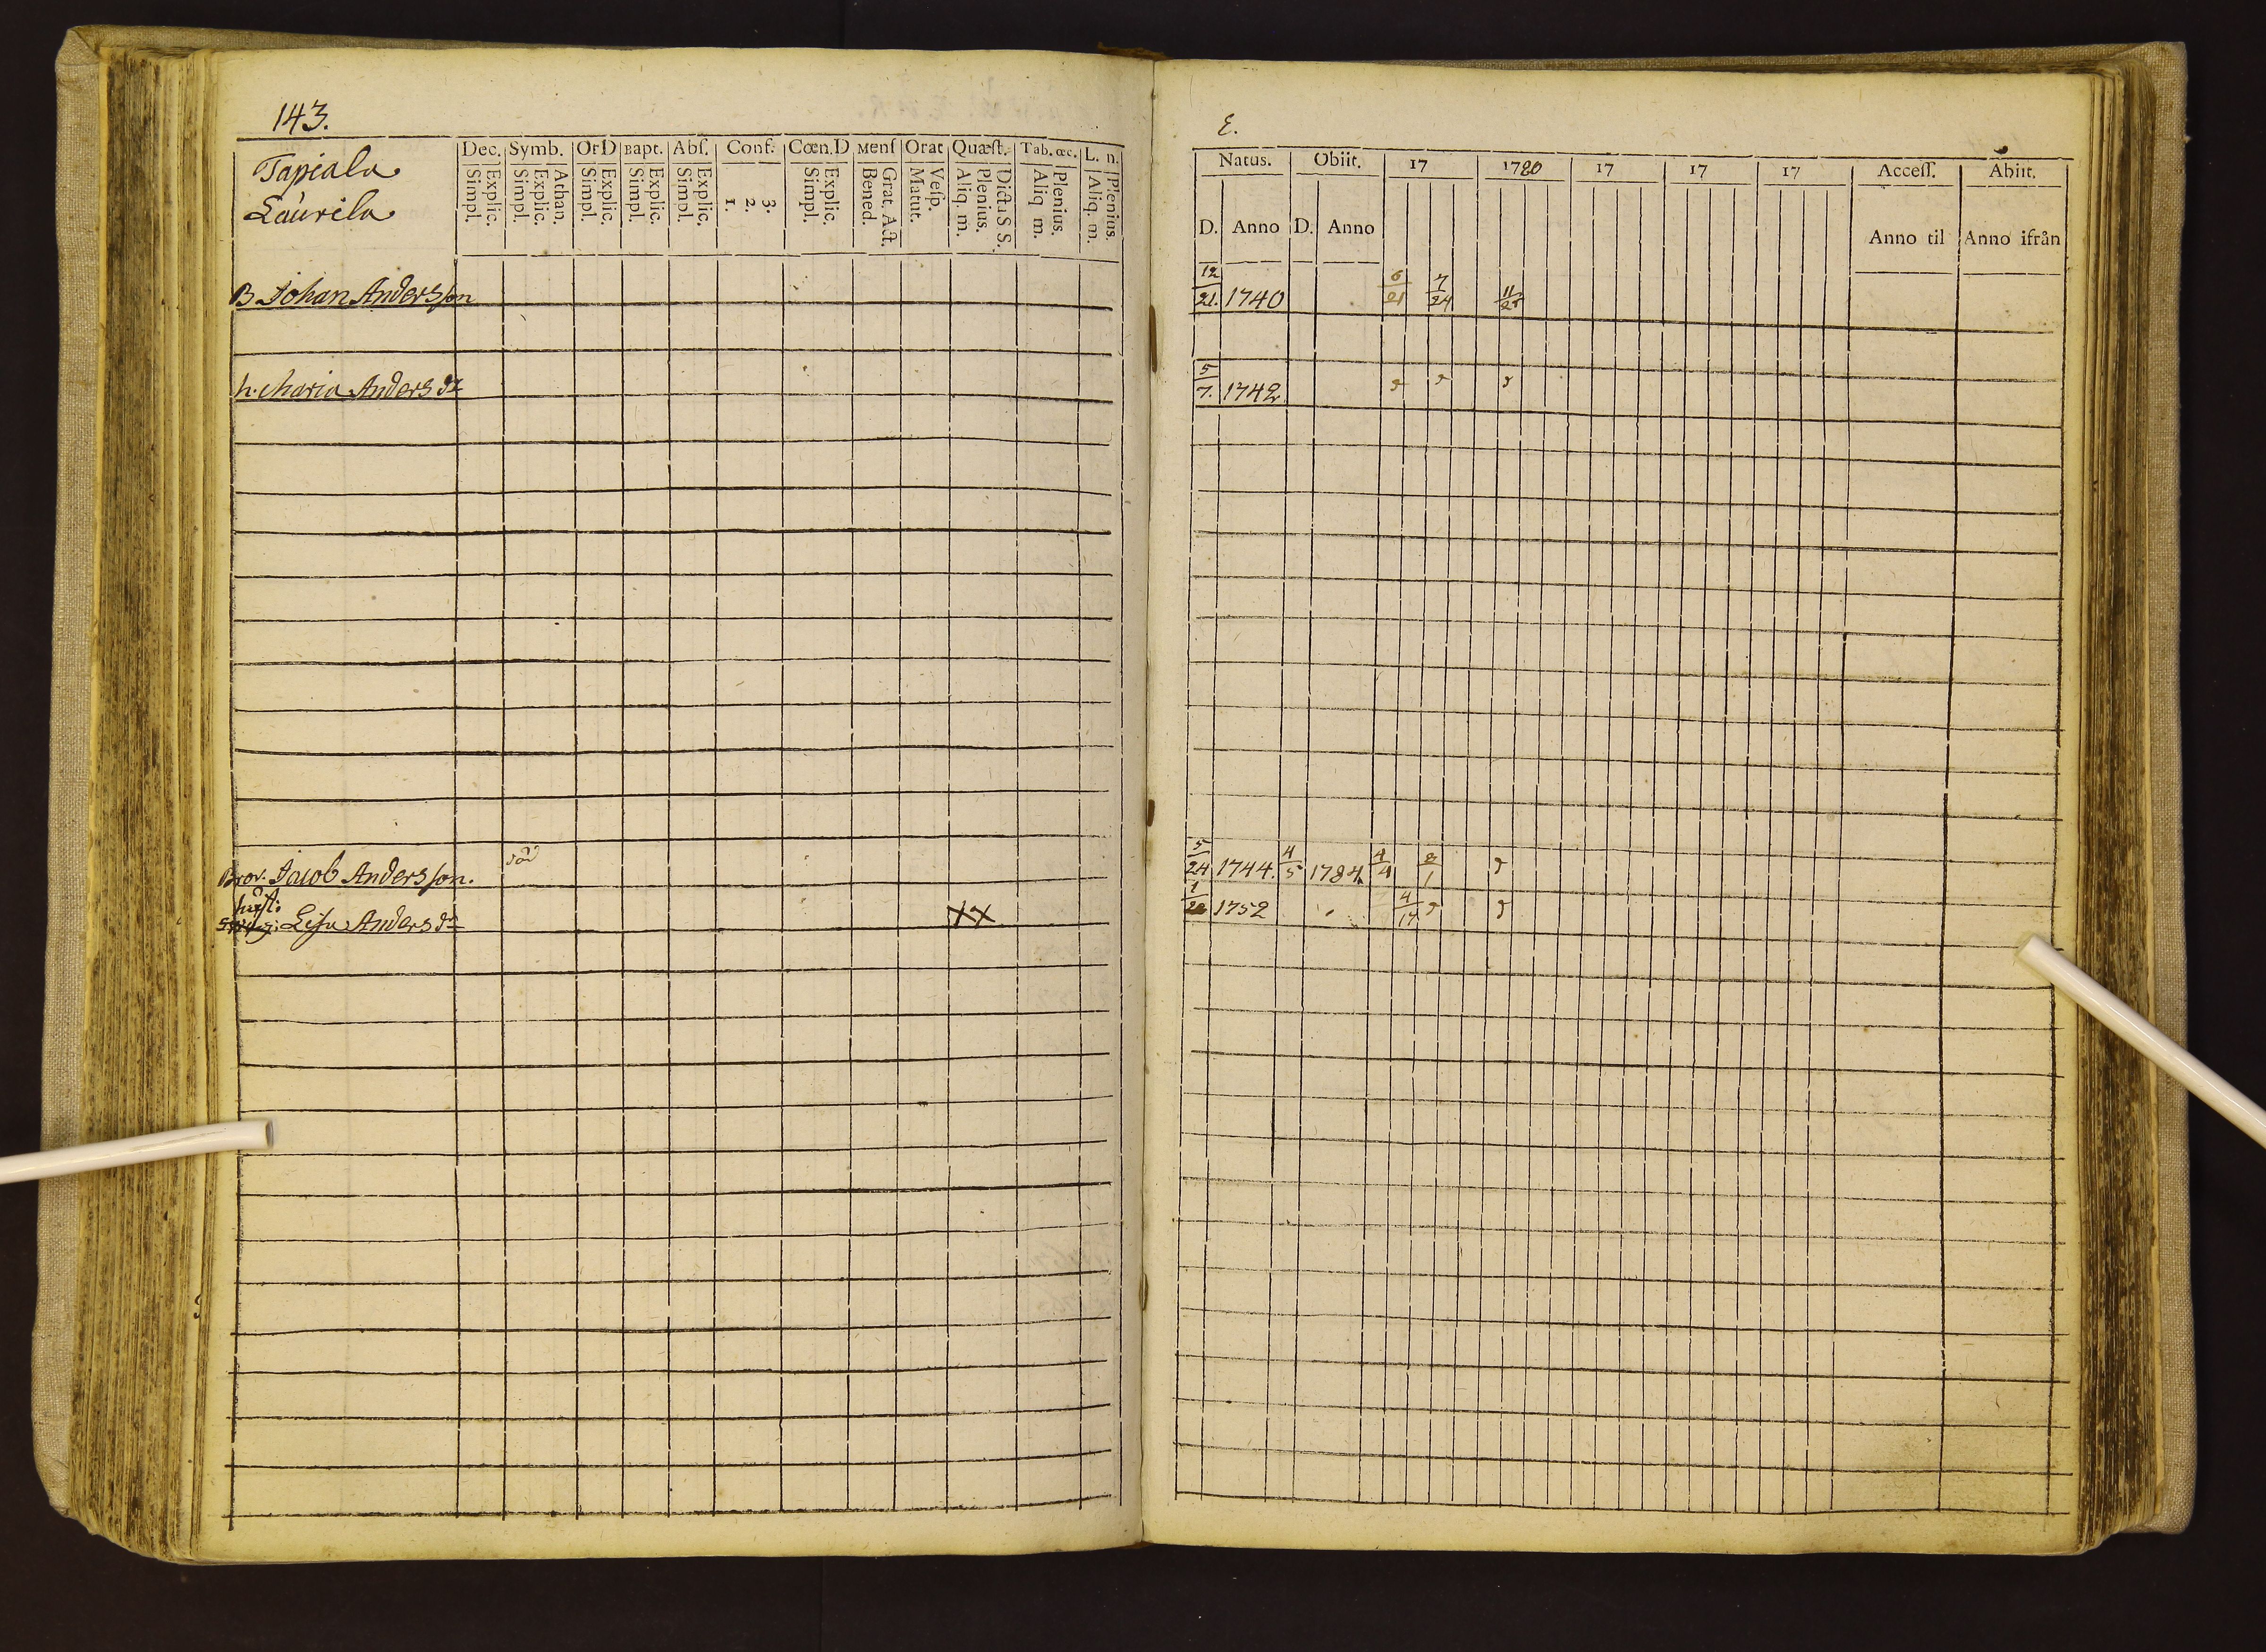 143.
Tapiala
Laurila
Dec. Symb. OrD Bapt. Abſ. Conf. Cœn.D Menſ Orat Quæſt. Tab. œc. L. n.
Explic. Simpl. Athan. Explic. Simpl. Explic. Simpl. Explic. Simpl. Explic. Simpl. 3. 2. 1. Explic. Simpl. Grat. Act. Bened. Veſp. Matut. Dicta S S. Plenius. Aliq. m. Plenius. Aliq m. Plenius. Aliq. m.
B Johan Andersson
h. Maria Anders dr
Bror. Jacob Andersson. död
hust:
Lisa Anders dr XX
E.
Natus. Obiit. 17 1780 17 17 17 Acceſſ. Abiit.
D. Anno D. Anno Anno til Anno ifrån
12/21. 1740 6/21 7/24 11/25
5/7. 1742
5/24 1744. 4/5 1784. 4/4 8/1
1/22 1752 4/17